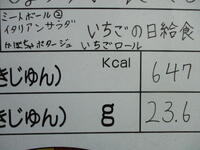 ミートボール②
イタリアンサラダ
かぼちゃポタージュ
いちごの日給食
いちごロール
Kcal
きじゅん) 647
きじゅん) g 23.6